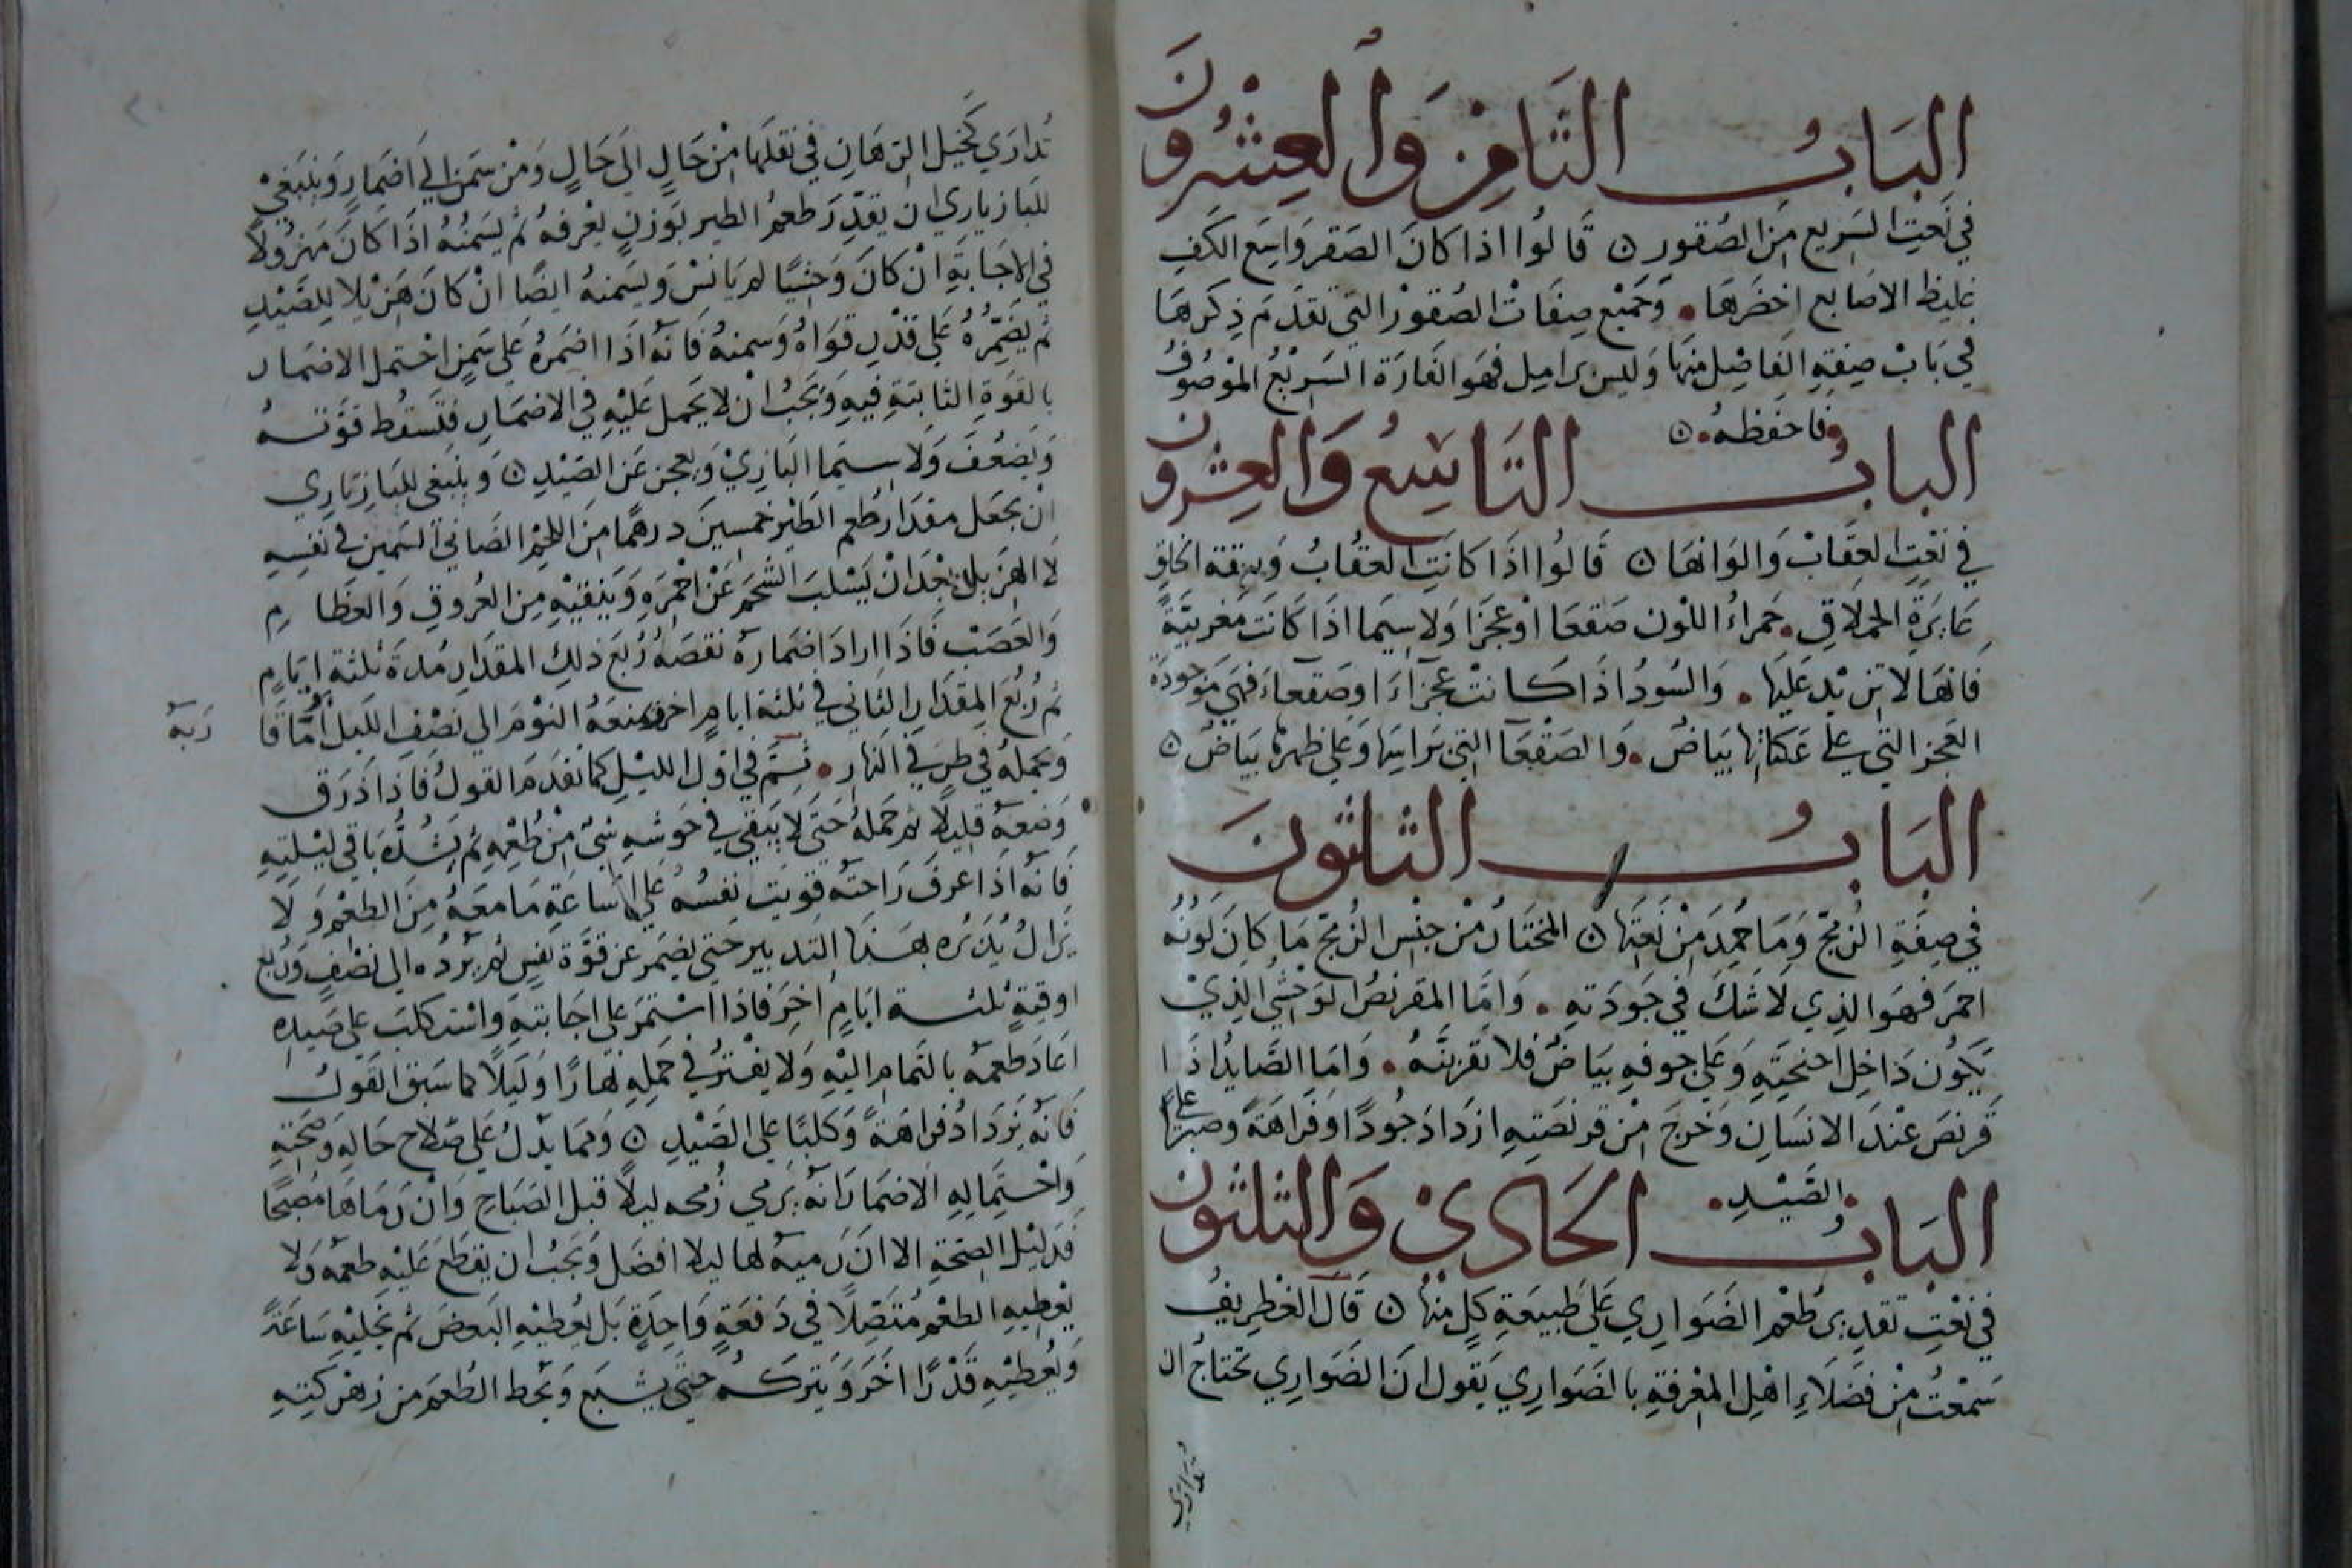 الباب الثامن والعشرون
في نعت السريع من الصقور ۞ قالوا اذا كان الصقر واسع الكف
غليظ الاصابع اخضرها • وجميع صفات الصقور التي تقدم ذكرها
في باب صفة الفاضل منها وليس براميل فهو الفارة السريع الموصوف
فاحفظه • ۞
الباب التاسع والعشرون
في نعت العقاب والوانها ۞ قالوا اذا كانت العقاب وثيقة الخلق
غايرة الحملاق • حمراء اللون صقعا او عجزا ولا سيما اذا كانت مغربية
فانها لا تزيد عليها • والسود اذا كانت عجزاء اوصقعاء فهي موجودة
العجز التي على عكاتها بياض • والصقعا التي براسها وعلى ظهرها بياض ۞
الباب الثلثون
في صفة الزمج وما حمد من نعتها ۞ المختار من جنس الزمج ما كان لونه
احمر فهو الذي لا شك في جودته • واما المقرنص الوحشي الذي
يكون داخل اجنحته وعلى جوفه بياض فلا تقربنه • واما الصايد اذا
قرنص عند الانسان وخرج من قرنصته ازداد جودا وفراهة وصبرا على
الصيد •
الباب الحادي والثلثون
في نعت تقدير طعم الضواري على طبيعة كل منها ۞ قال الغطريف
سمعت من فضلاء اهل المعرفة بالضواري يقول ان الضواري تحتاج ان
تداري
تداري كخيل الرهان في نقلها من حال الى حال ومن سمن الى اضمار وينبغي
للبازياري ان يقدر طعم الطير بوزن يعرفه ثم يسمنه اذا كان مهزولا
في الاجابة ان كان وحشيا لم يانس ويسمنه ايضا ان كان هزيلا للصيد
ثم يضمره على قدر قواه وسمنه فانه اذا اضمره على سمن احتمل الاضمار
بالقوة الثابتة فيه ويجب ان لا يحمل عليه في الاضمار فتسقط قوته
ويضعف ولا سيما البازي ويعجز عن الصيد ۞ وينبغي للبازياري
ان يجعل مقدار طعم الطير خمسين درهما من اللحم الضاني السمين في نفسه
لا الهزيل بعد ان يسلب الشحم عن احمره وينقيه من العروق والعظام
والعصب فاذا اراد اضماره نقصه ربع ذلك المقدار مدة ثلثة ايام
ثم ربع المقدار الثاني في ثلثة ايام اخر ويمنعه النوم الي نصف الليل
ويحمله في طرفي النهار • ثم في اول الليل كما تقدم القول فاذا ذرق
وضعه قليلا ثم حمله حتى لا يبقي في حوشه شئ من طعمه ثم يشده باقي ليلته
فانه اذا عرف راحته قويت نفسه على اساعة ما معه من الطعم ولا
يزال يدبره بهذا التدبير حتى يضمر عن قوة نفس ثم يرده الى نصف وربع
اوقية ثلثة ايام اخر فاذا استمر على اجابته واستكلب على صيده
اعاد طعمه بالتمام اليه ولا يفتر في حمله نهارا وليلا كما سبق القول
فانه يزداد فراهة وكلبا على الصيد ۞ ومما يدل على صلاح حاله وصحته
واحتماله الاضمار انه يرمي زمجه ليلا قبل الصباح وان رماها مصبحا
فدليل الصحة الا ان رميه لها ليلا افضل ويجب ان يقطع عليه طعمه ولا
يعطيه الطعم متصلا في دفعة واحدة بل يعطيه البعض ثم يخليه ساعة
ويعطيه قدرا اخر ويتركه حتى يشبع ويحط الطعم من زهركته